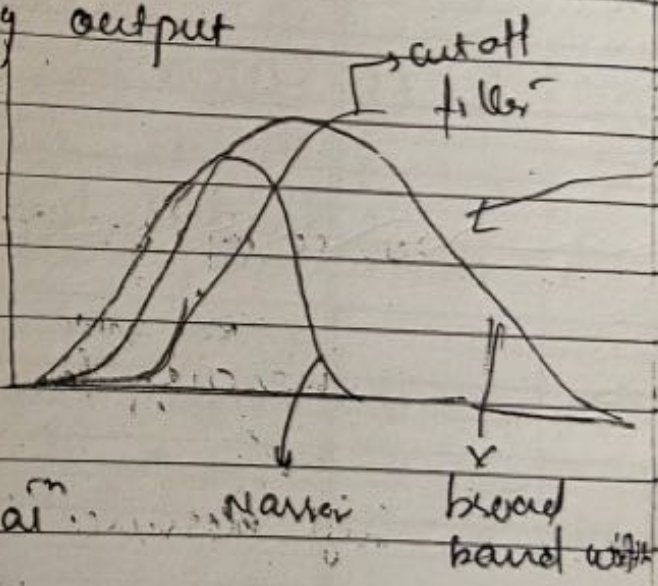 output
cutoff
filter
Narrow
broad
band width